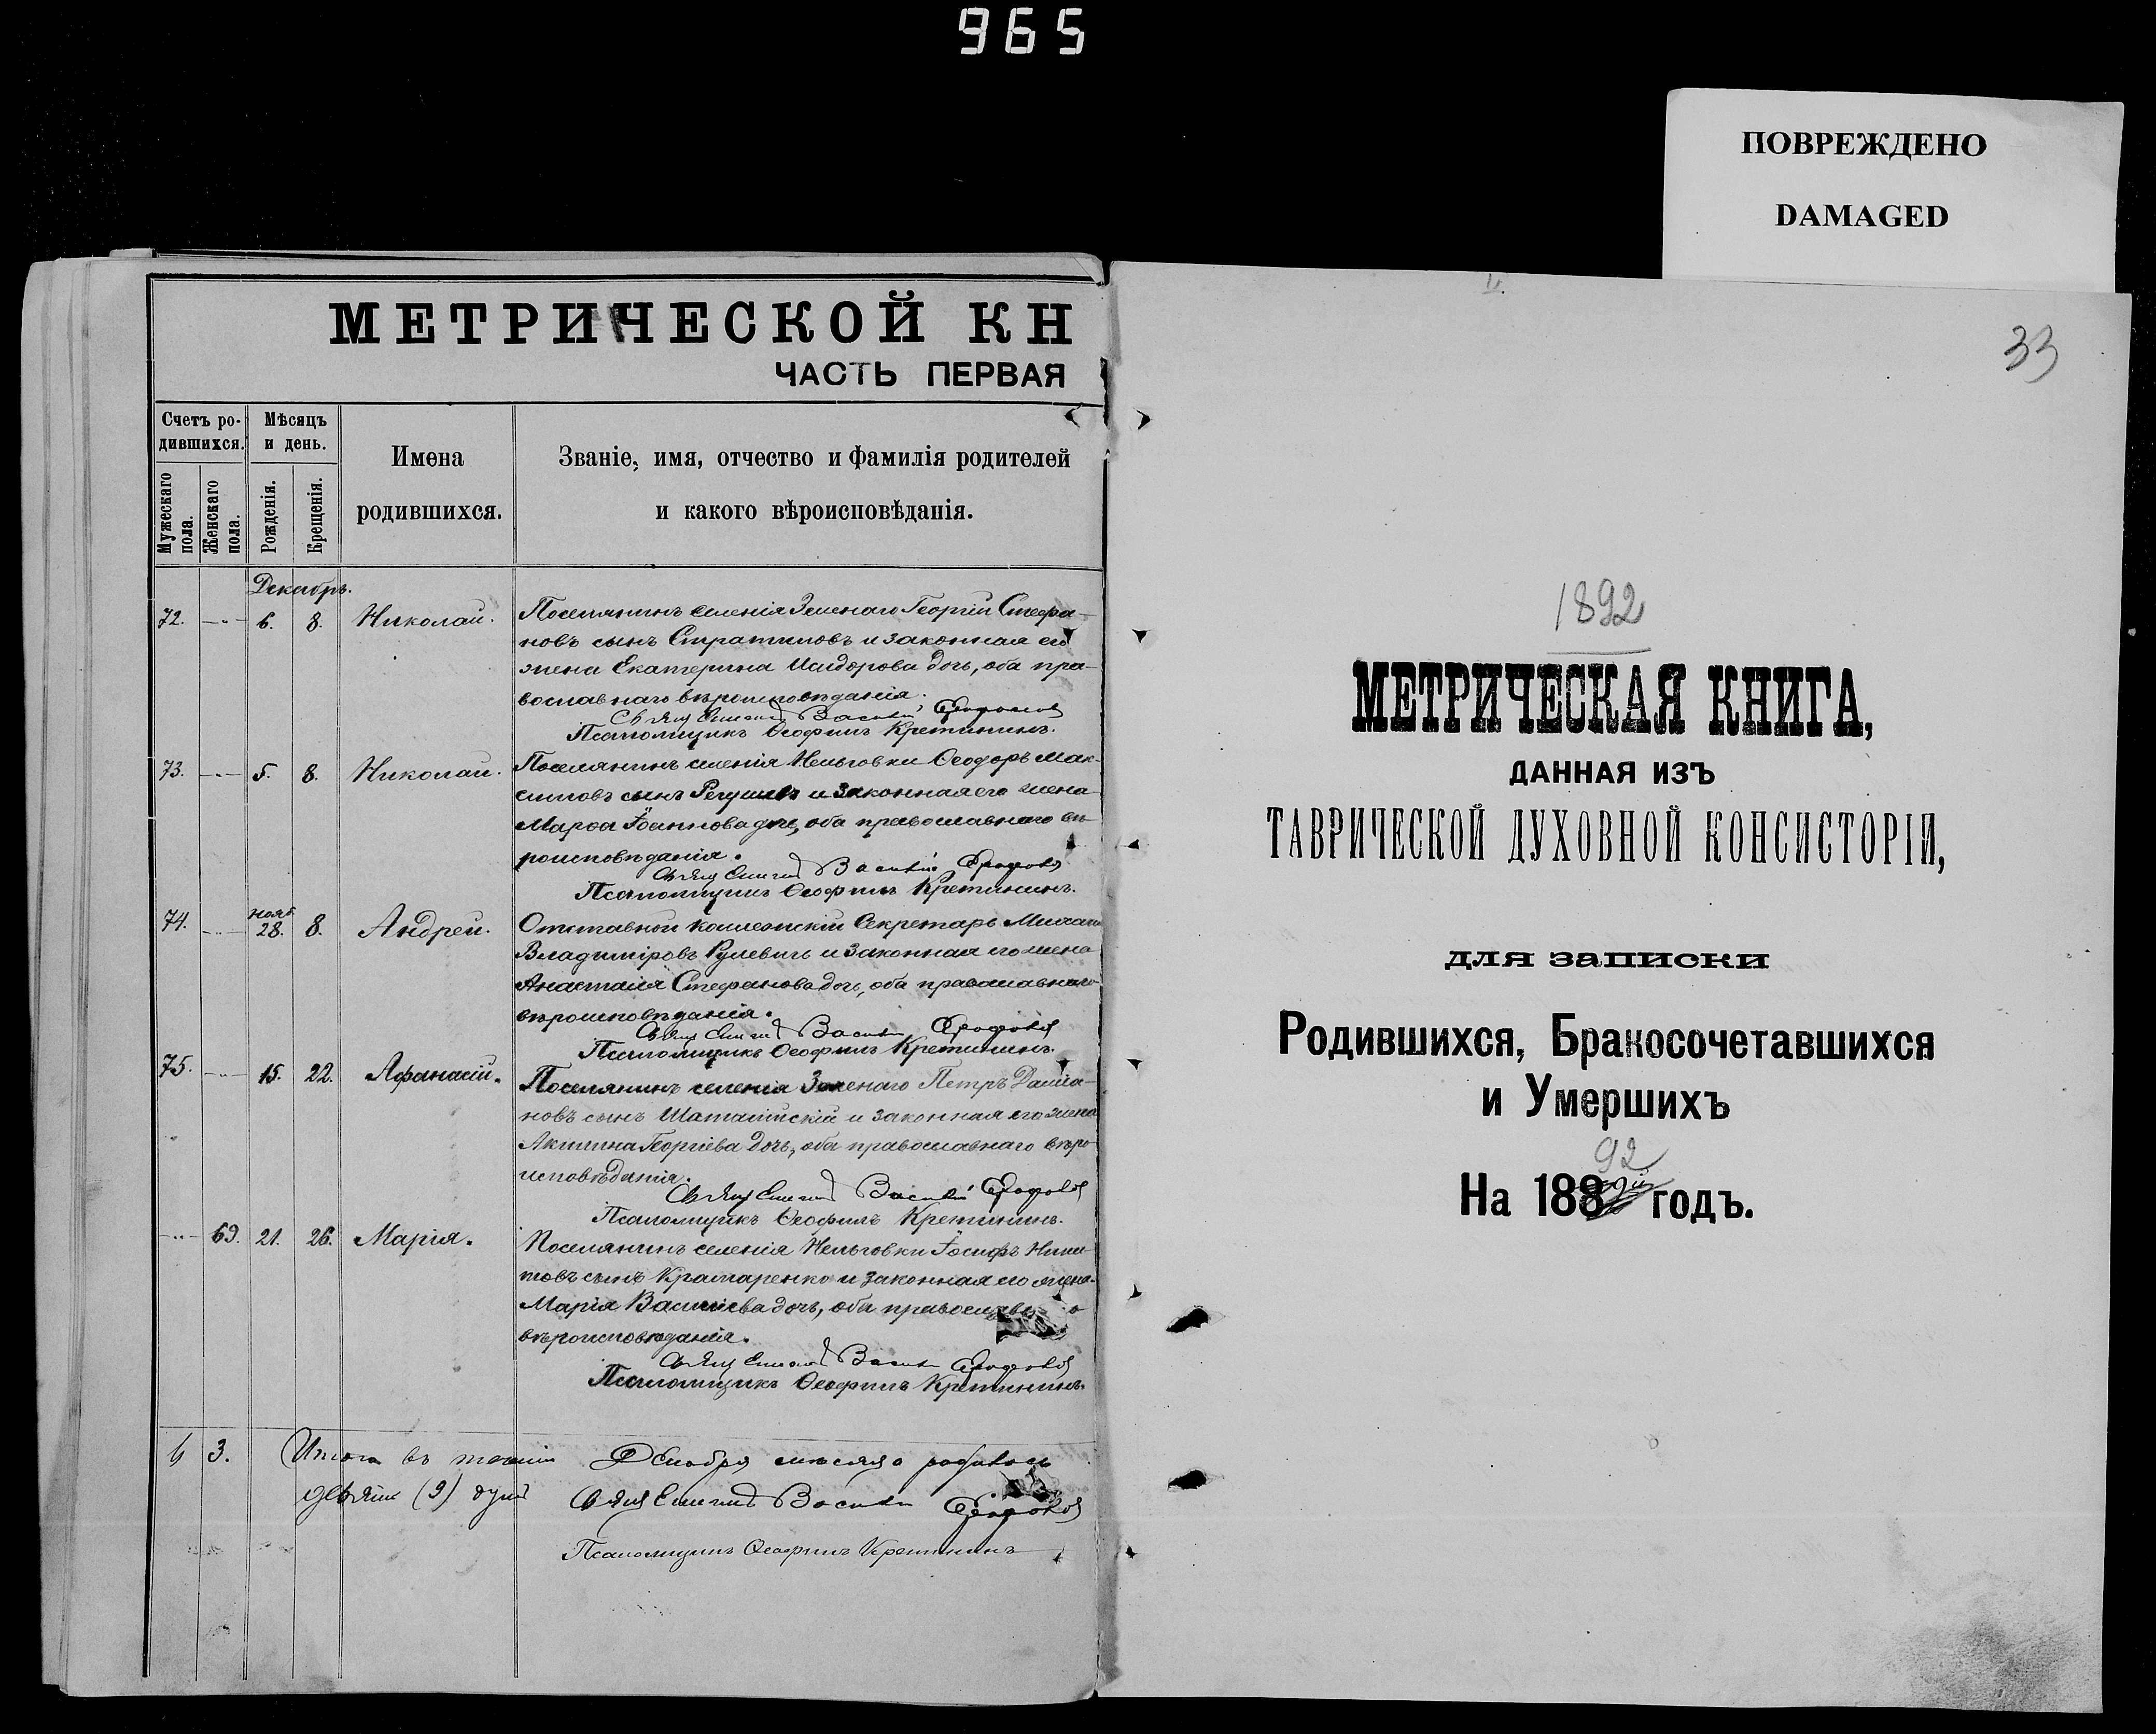 965
ПОВРЕЖДЕНО
DAMAGED
МЕТРИЧЕСКОЙ КН
ЧАСТЬ ПЕРВАЯ
Счетъ ро-
дившихся.
Мѣсяцъ
и день.
Мужескаго
пола.
Женскаго
пола.
Рожденія.
Крещенія.
Имена
родившихся.
Званіе, имя, отчество и фамилія родителей
и какого вѣроисповѣданія.
Декабрь.
72. 6. 8. Николай. Поселянинъ селенія Зеленаго Георгій Стефа-
новъ сынъ Стратиловъ и законная его
жена Екатерина Исидорова дочь, оба пра-
вославнаго вѣроисповѣданія.
Священникъ Василій
Псаломщикъ Ѳеофилъ Кретининъ.
73. 5. 8. Николай. Поселянинъ селенія Нельговки Ѳеодоръ Мак-
симовъ сынъ и законная его жена
Марѳа Іоаннова дочь, оба православнаго вѣ-
роисповѣданія.
Священникъ Василій
Псаломщикъ Ѳеофилъ Кретининъ.
74. Нояб. 28. 8. Андрей. Отставной коллежскій Секретарь Михаилъ
Владиміровъ Рулевичъ и законная его жена
Анастасія Стефанова дочь, оба православнаго
вѣроисповѣданія.
Священникъ Василій
Псаломщикъ Ѳеофилъ Кретининъ.
75. 15. 22. Афанасій. Поселянинъ селенія Зеленаго Петръ Даміа-
новъ сынъ и законная его жена
Акилина Георгіева дочь, оба православнаго вѣро-
исповѣданія.
Священникъ Василій
Псаломщикъ Ѳеофилъ Кретининъ.
69. 21. 26. Марія. Поселянинъ селенія Нельговки Іосифъ Ники-
товъ сынъ Крамаренко и законная его жена
Марія Василіева дочь, оба православнаго
вѣроисповѣданія.
Священникъ Василій
Псаломщикъ Ѳеофилъ Кретининъ.
6 3. Итого въ Декабря мѣсяца родилось
девять (9) душъ Священникъ Василій
Псаломщикъ Ѳеофилъ Кретининъ
33
1892
МЕТРИЧЕСКАЯ КНИГА,
ДАННАЯ ИЗЪ
ТАВРИЧЕСКОЙ ДУХОВНОЙ КОНСИСТОРІИ,
для записки
Родившихся, Бракосочетавшихся
и Умершихъ
92
На 188 годъ.